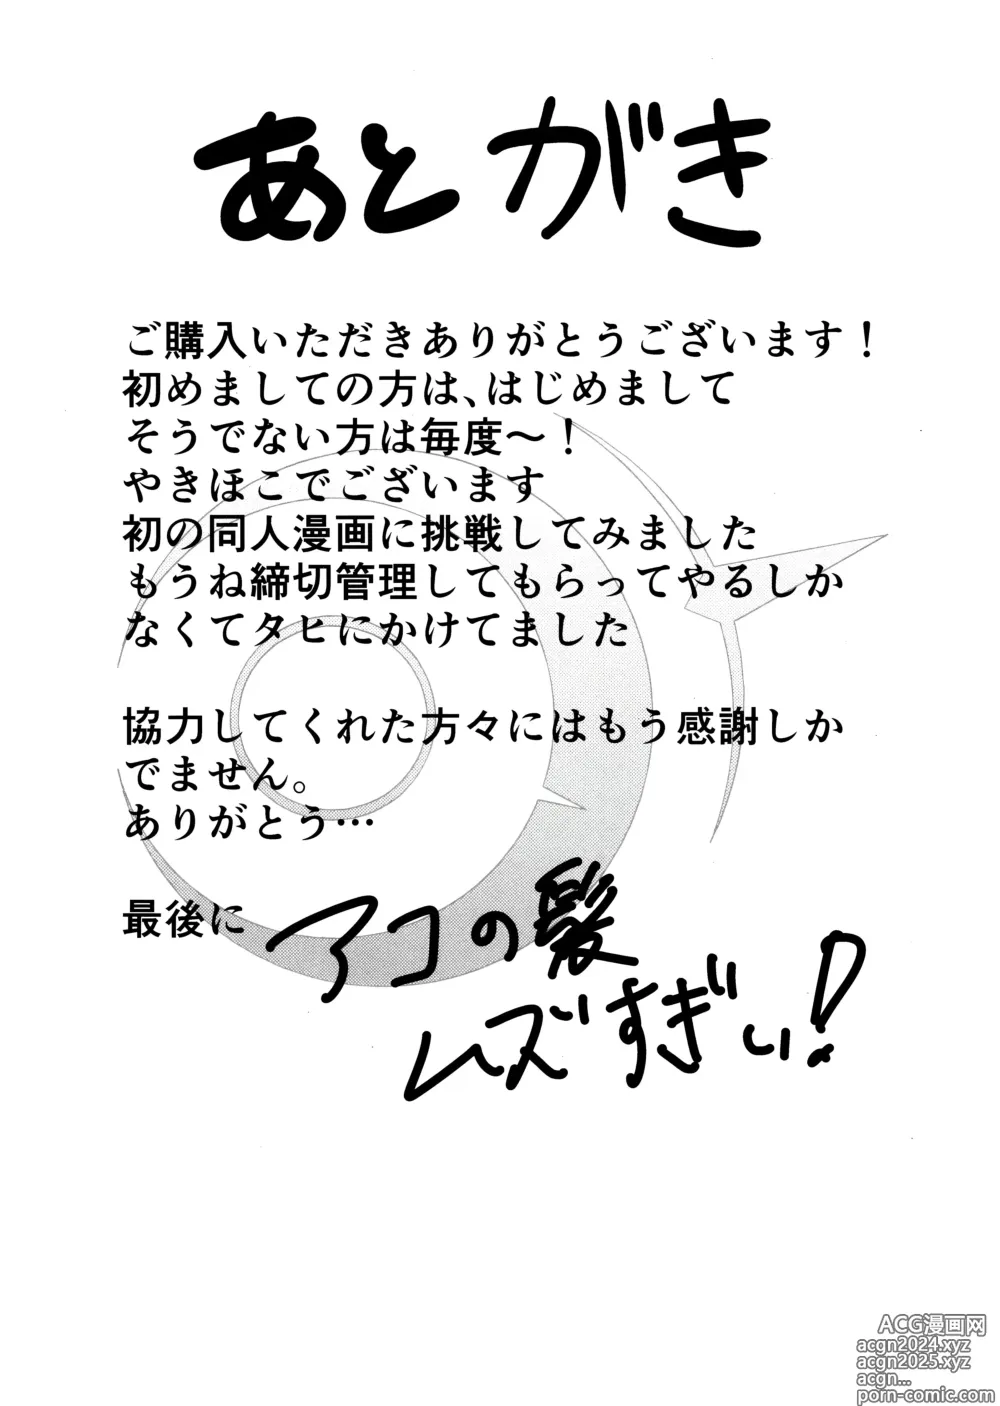 あとがき
ご購入いただきありがとうございます！
初めましての方は、はじめまして
そうでない方は毎度～！
やきほこでございます
初の同人漫画に挑戦してみました
もうね締切管理してもらってやるしか
なくてタヒにかけてました
協力してくれた方々にはもう感謝しか
でません。
ありがとう…
最後に アコの髪
ムズすぎぃ！
ACG漫画网
acgn2024.xyz
acgn2025.xyz
acgn...
porn-comic.com